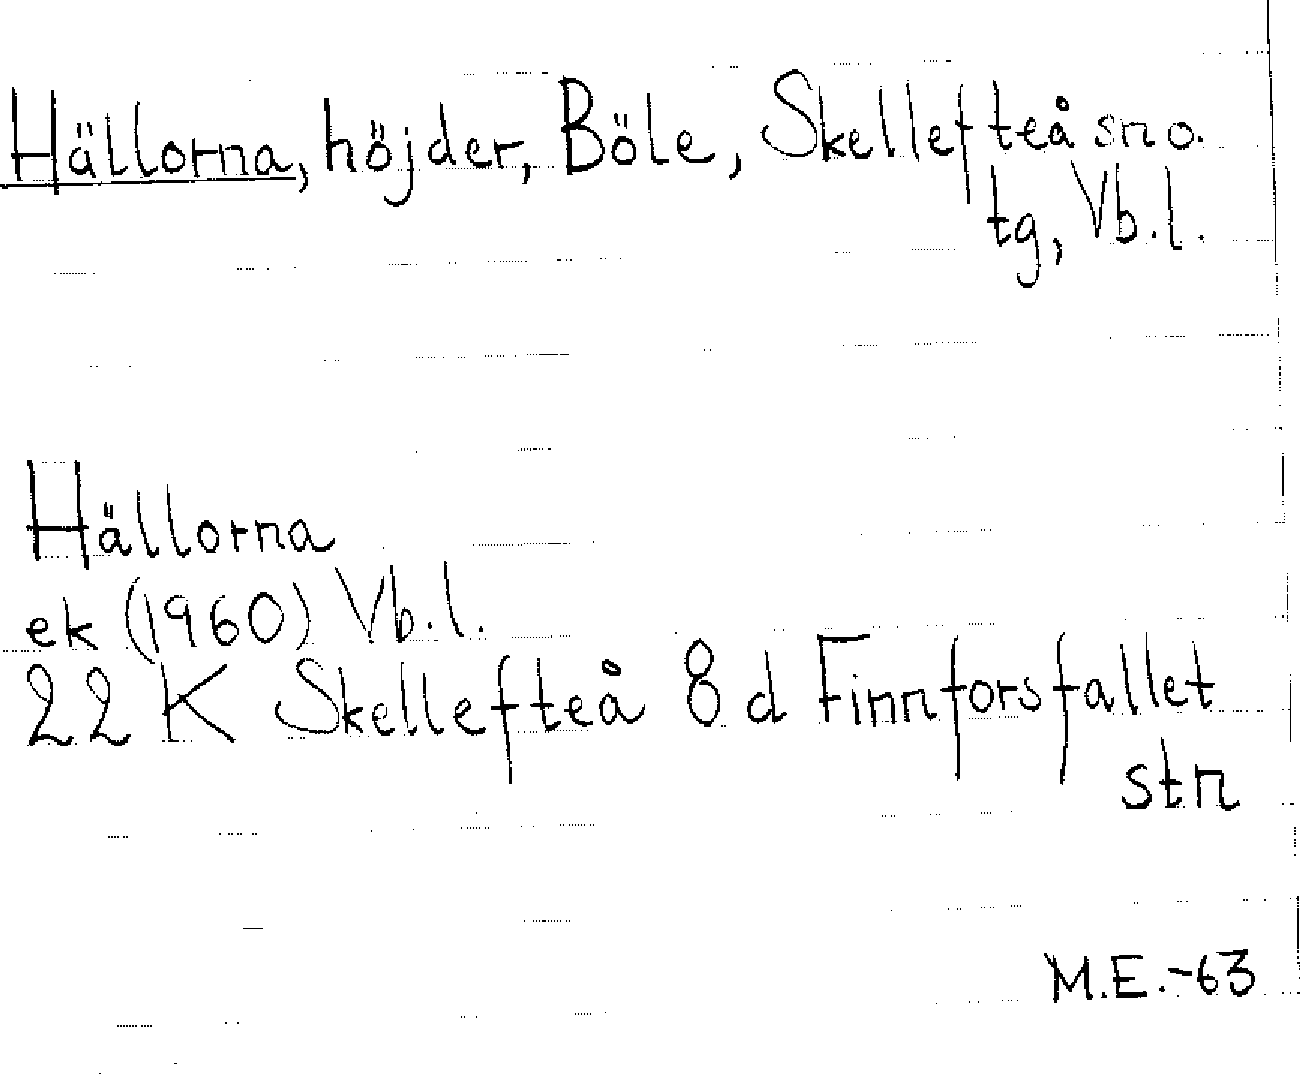 Hällorna, höjder, Böle, Skellefteå sn o.
tg, Vb.l.
Hällorna
ek (1960) Vb.l.
22 K Skellefteå 8 d Finnforsfallet
str
M.E.-63